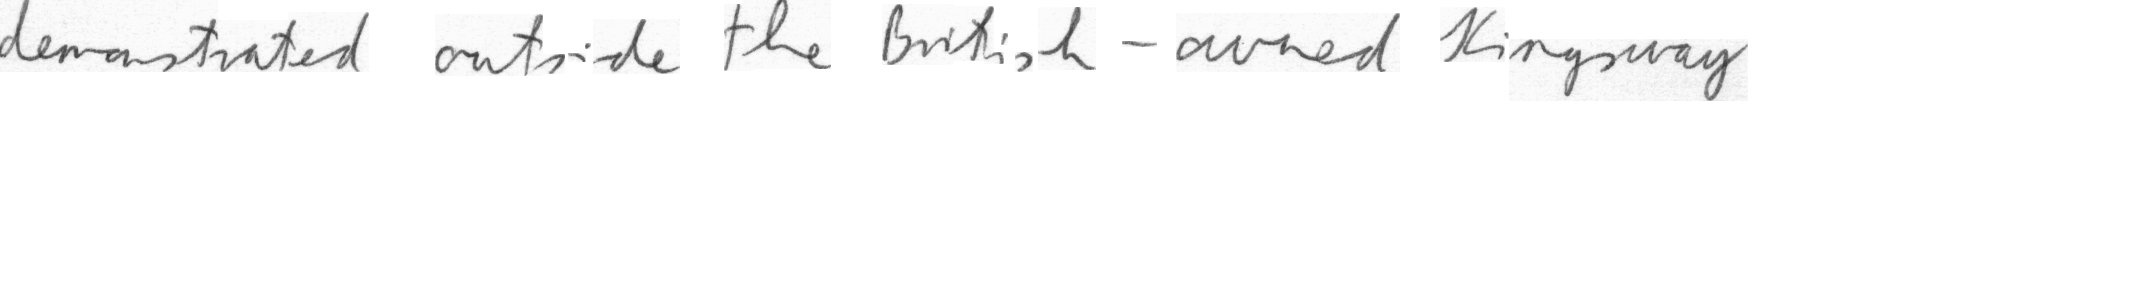 demonstrated outside the British - owned Kingsway